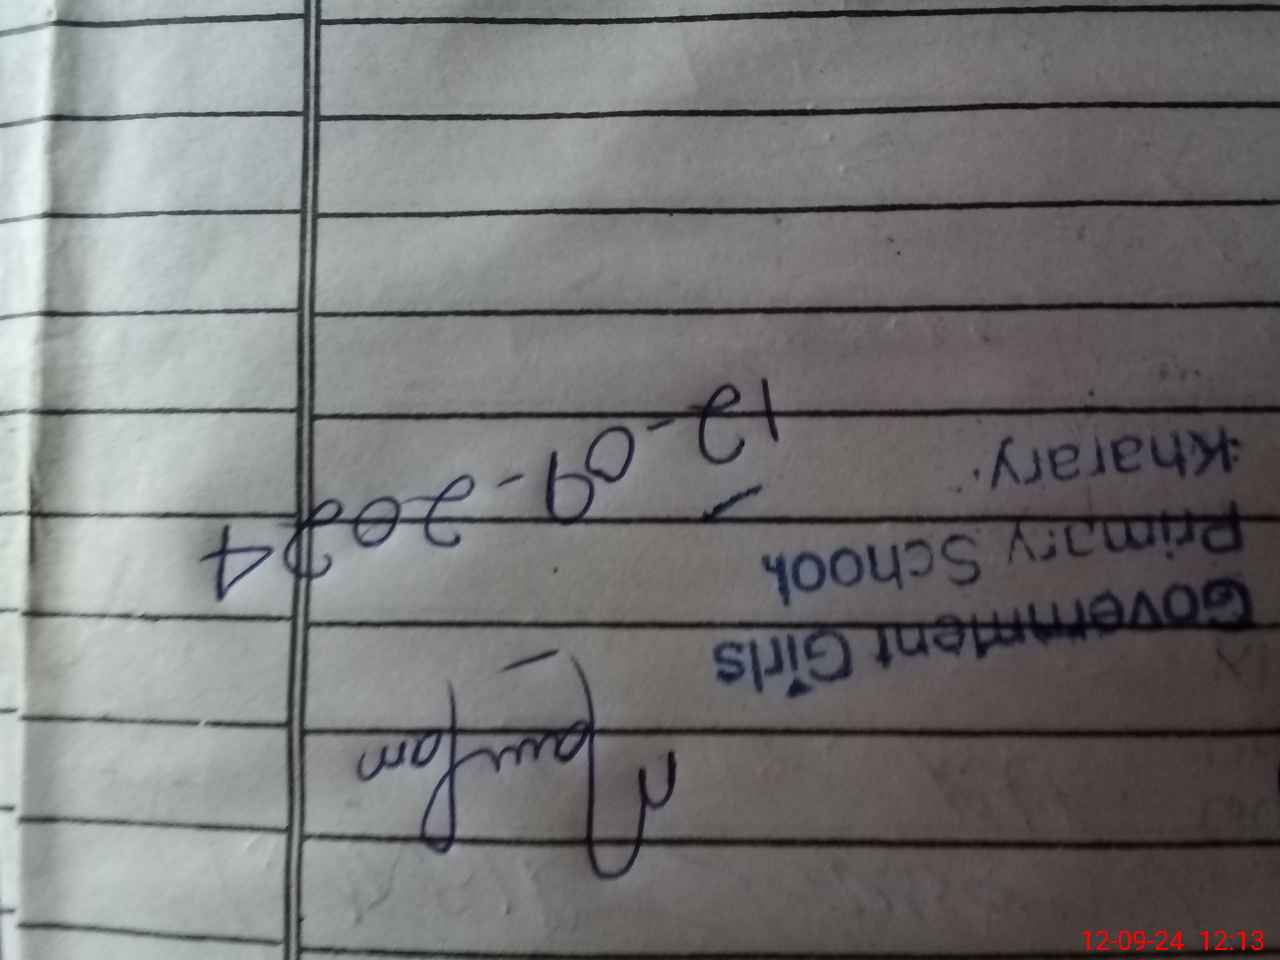 Government Girls
Primary School
Kharary.
12-09-2024
12-09-24 12:13